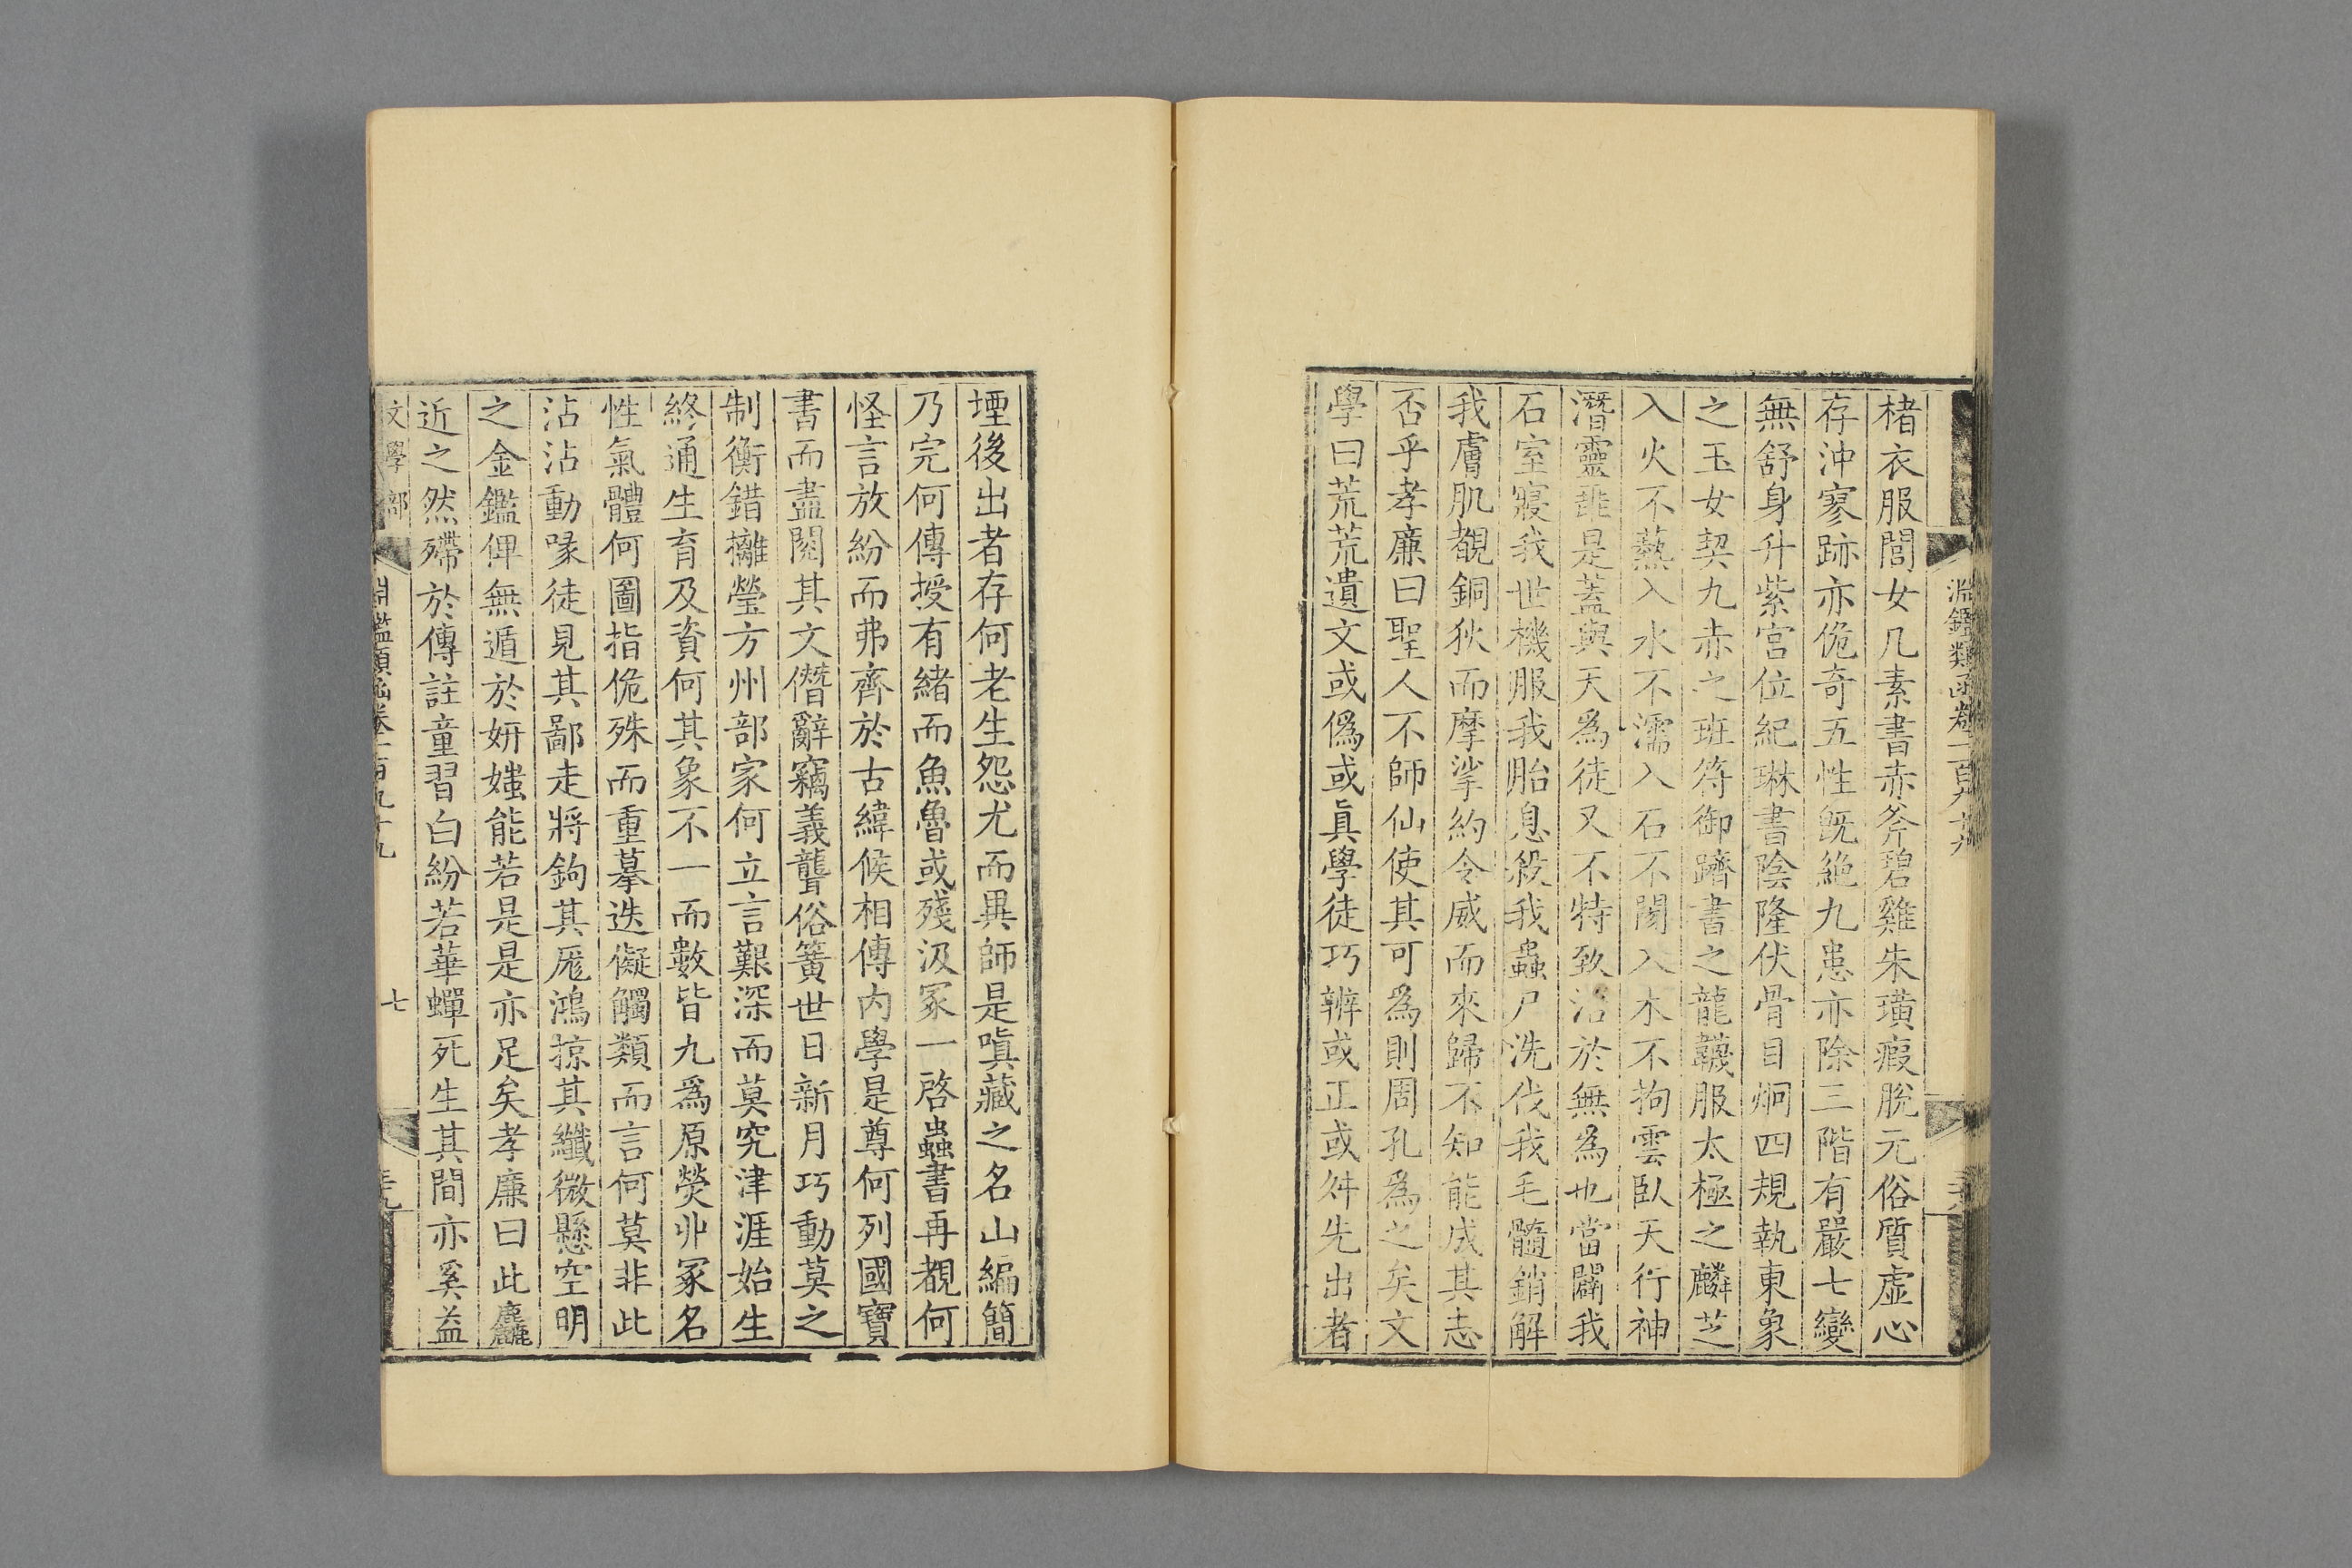 楮衣服閭女几素書赤斧碧雞朱璜瘕脫元俗質虛心
存沖寥跡亦佹奇五性旣絶九患亦除三階有嚴七變
無舒身升紫宫位紀琳書陰隆伏骨目炯四規執東象
之玉女契九赤之班符御躋書之龍韈服太極之麟芝
入火不爇入水不濡入石不閡入木不拘雲臥天行神
潛靈飛是蓋與天爲徒又不特致治於無爲也當闢我
石室寢我世機服我胎息殺我蟲尸洗伐我毛髓銷解
我膚肌覩銅狄而摩挲約令威而來歸不知能成其志
否乎孝廉曰聖人不師仙使其可爲則周孔爲之矣文
學曰荒荒遺文或僞或眞學徒巧辨或正或舛先出者
堙後出者存何老生怨尤而異師是嗔藏之名山編簡
乃完何傳授有緒而魚魯或殘汲冢一啓蟲書再覩何
怪言放紛而弗齊於古緯候相傳内學是尊何列國寶
書而盡閟其文僭辭竊義聾俗簧世日新月巧動莫之
制衡錯攡瑩方州部家何立言艱深而莫究津涯始生
終通生育及資何其象不一而數皆九爲原熒丱冢名
性氣體何圖指佹殊而重摹迭儗觸類而言何莫非此
沾沾動喙徒見其鄙走將鉤其厖鴻掠其纖微懸空明
之金鑑俾無遁於妍媸能若是是亦足矣孝廉曰此麤
近之然殢於傳註童習白紛若華蟬死生其間亦奚益
文學部
淵鑑類函卷一百九十九
七